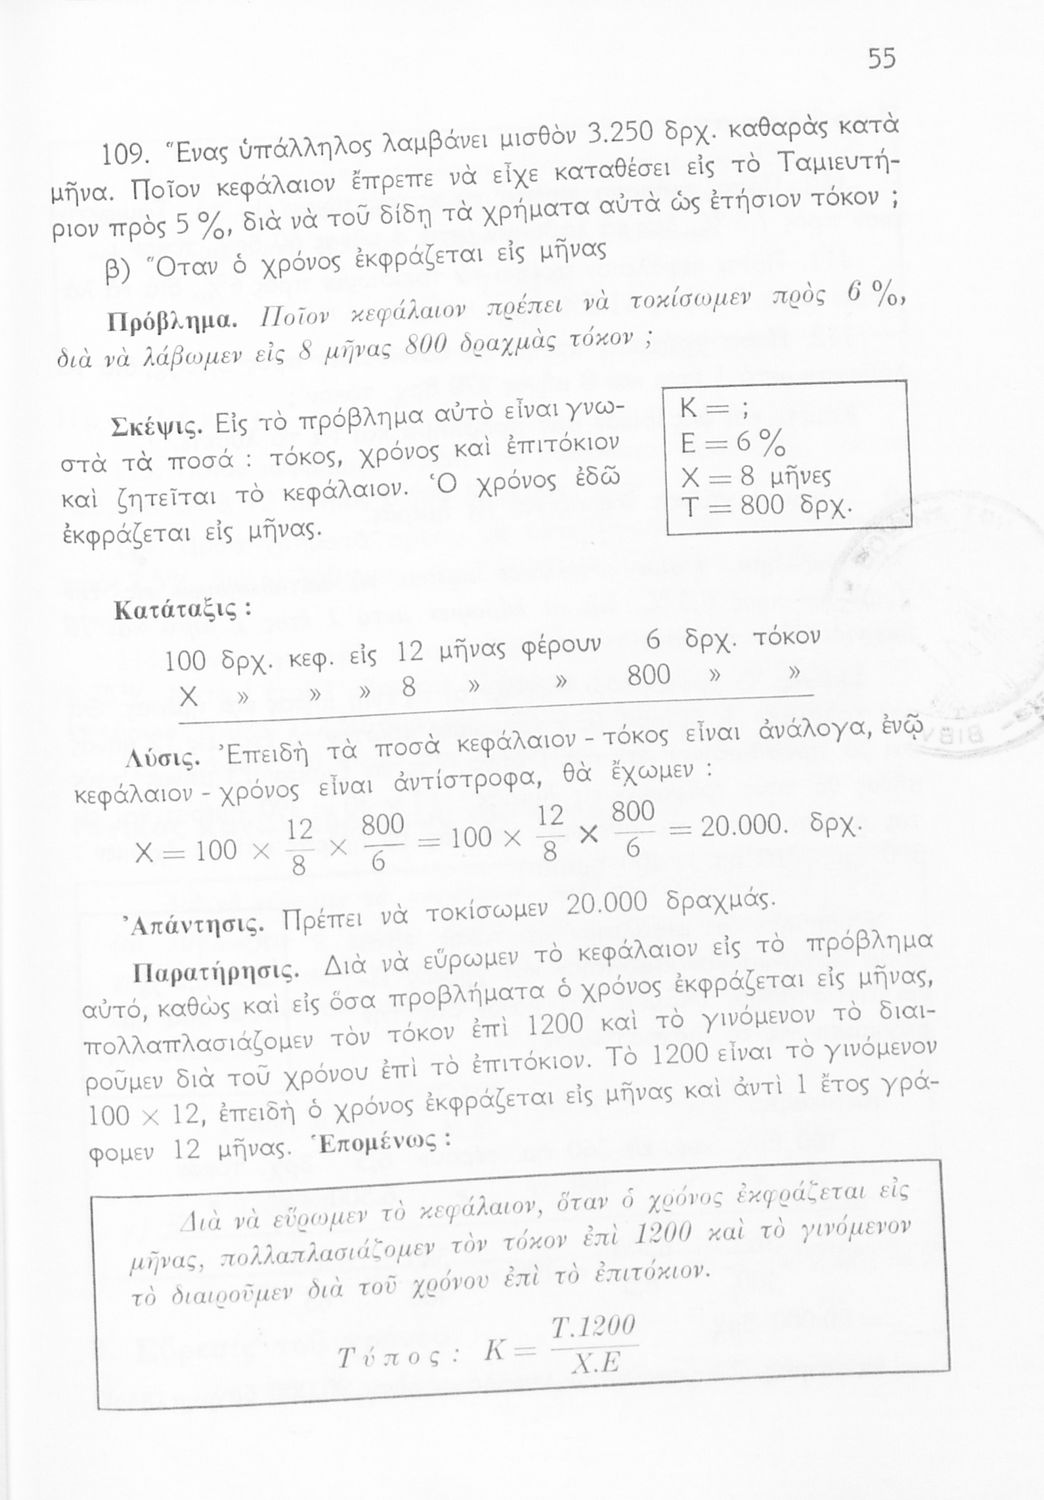 55
109. Ἕνας ὑπάλληλος λαμβάνει μισθὸν 3.250 δρχ. καθαρὰς κατὰ
μῆνα. Ποῖον κεφάλαιον ἔπρεπε νὰ εἶχε καταθέσει εἰς τὸ Ταμιευτή-
ριον πρὸς 5 %, διὰ νὰ τοῦ δίδῃ τὰ χρήματα αὐτὰ ὡς ἐτήσιον τόκον ;
β) Ὅταν ὁ χρόνος ἐκφράζεται εἰς μῆνας
Πρόβλημα. Ποῖον κεφάλαιον πρέπει νὰ τοκίσωμεν πρὸς 6 %,
διὰ νὰ λάβωμεν εἰς 8 μῆνας 800 δραχμὰς τόκον ;
Σκέψις. Εἰς τὸ πρόβλημα αὐτὸ εἶναι γνω-
στὰ τὰ ποσά : τόκος, χρόνος καὶ ἐπιτόκιον
καὶ ζητεῖται τὸ κεφάλαιον. Ὁ χρόνος ἐδῶ
ἐκφράζεται εἰς μῆνας.
K = ;
E = 6 %
X = 8 μῆνες
T = 800 δρχ.
Κατάταξις :
100 δρχ. κεφ. εἰς 12 μῆνας φέρουν 6 δρχ. τόκον
X » » » 8 » » 800 » »
Λύσις. Ἐπειδὴ τὰ ποσὰ κεφάλαιον - τόκος εἶναι ἀνάλογα, ἐνῷ
κεφάλαιον - χρόνος εἶναι ἀντίστροφα, θὰ ἔχωμεν :
X = 100 × 12/8 × 800/6 = 100 × 12/8 × 800/6 = 20.000. δρχ.
Ἀπάντησις. Πρέπει νὰ τοκίσωμεν 20.000 δραχμάς.
Παρατήρησις. Διὰ νὰ εὕρωμεν τὸ κεφάλαιον εἰς τὸ πρόβλημα
αὐτό, καθὼς καὶ εἰς ὅσα προβλήματα ὁ χρόνος ἐκφράζεται εἰς μῆνας,
πολλαπλασιάζομεν τὸν τόκον ἐπὶ 1200 καὶ τὸ γινόμενον τὸ διαι-
ροῦμεν διὰ τοῦ χρόνου ἐπὶ τὸ ἐπιτόκιον. Τὸ 1200 εἶναι τὸ γινόμενον
100 × 12, ἐπειδὴ ὁ χρόνος ἐκφράζεται εἰς μῆνας καὶ ἀντὶ 1 ἔτος γρά-
φομεν 12 μῆνας. Ἑπομένως :
Διὰ νὰ εὕρωμεν τὸ κεφάλαιον, ὅταν ὁ χρόνος ἐκφράζεται εἰς
μῆνας, πολλαπλασιάζομεν τὸν τόκον ἐπὶ 1200 καὶ τὸ γινόμενον
τὸ διαιροῦμεν διὰ τοῦ χρόνου ἐπὶ τὸ ἐπιτόκιον.
Τύπος : K = T.1200/X.E